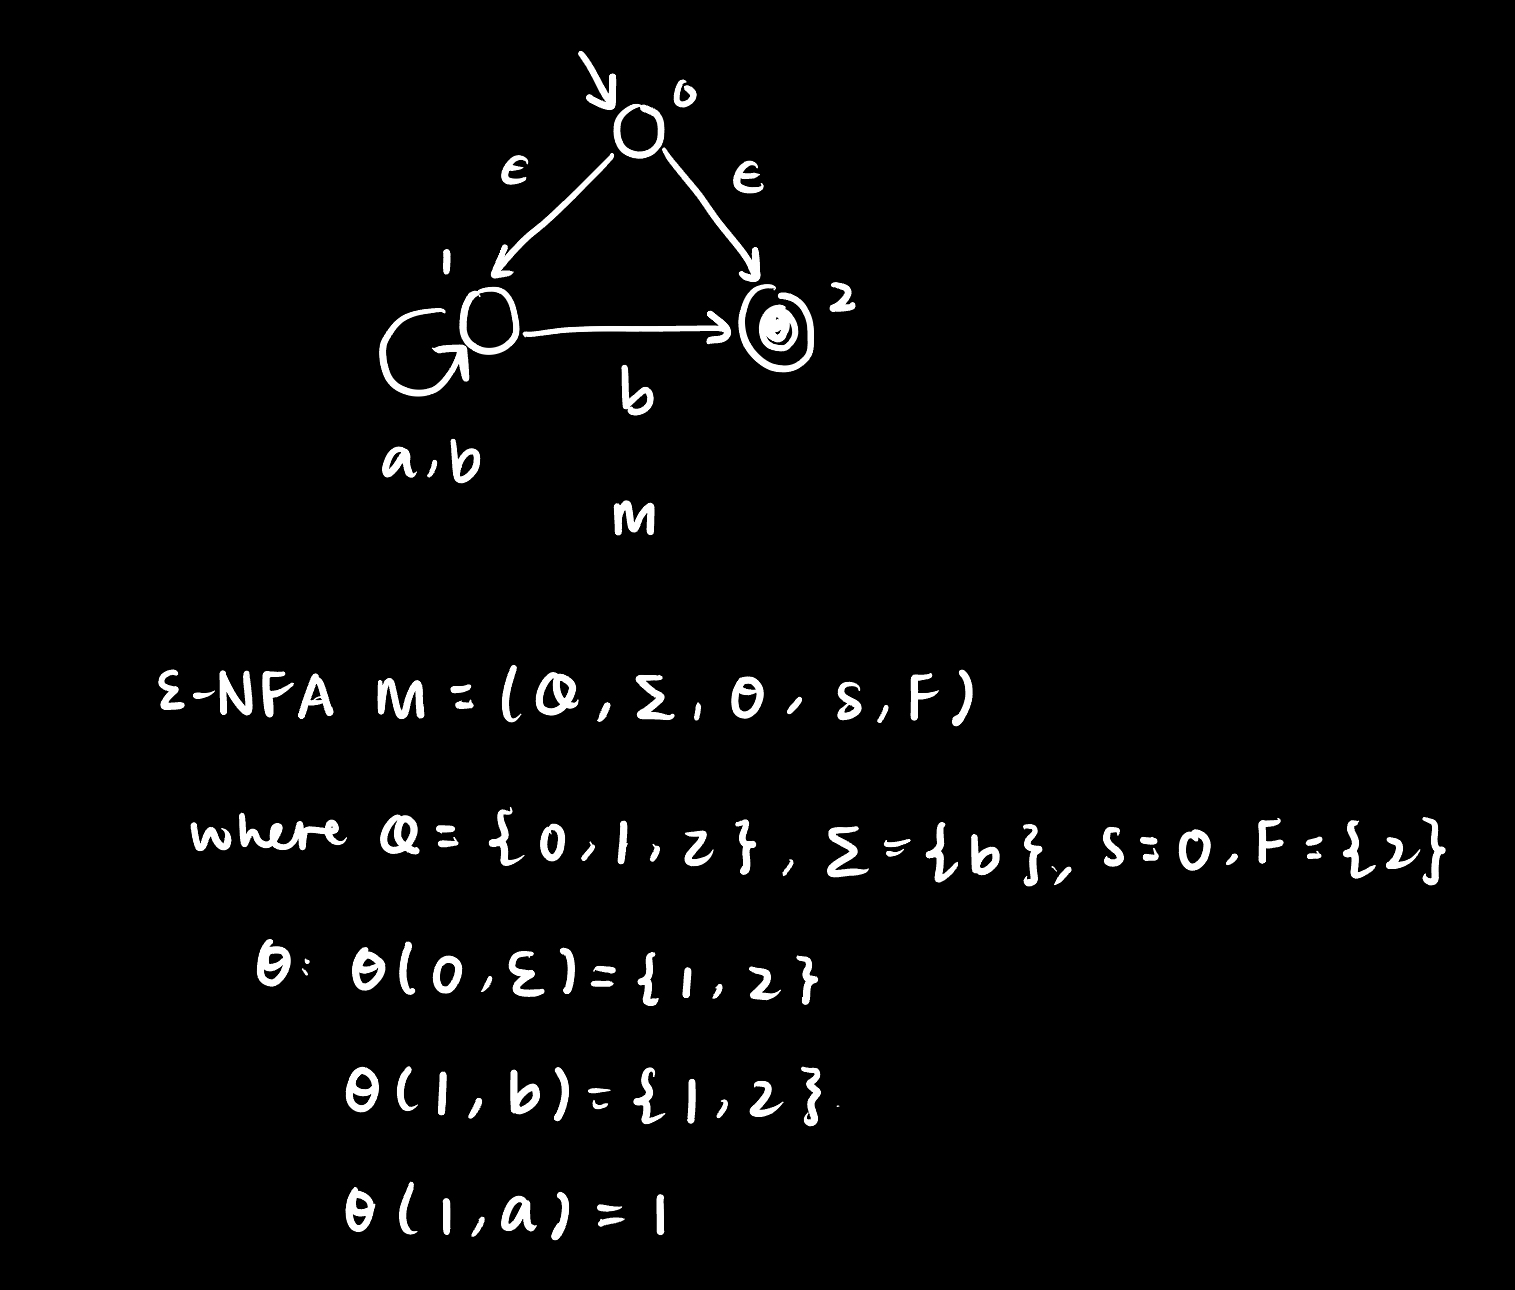 0
ϵ ϵ
1 2
b
a,b
M
ε-NFA M = (Q, Σ, θ, s, F)
where Q = {0, 1, 2}, Σ = {b}, s = 0, F = {2}
θ: θ(0, ε) = {1, 2}
θ(1, b) = {1, 2}
θ(1, a) = 1